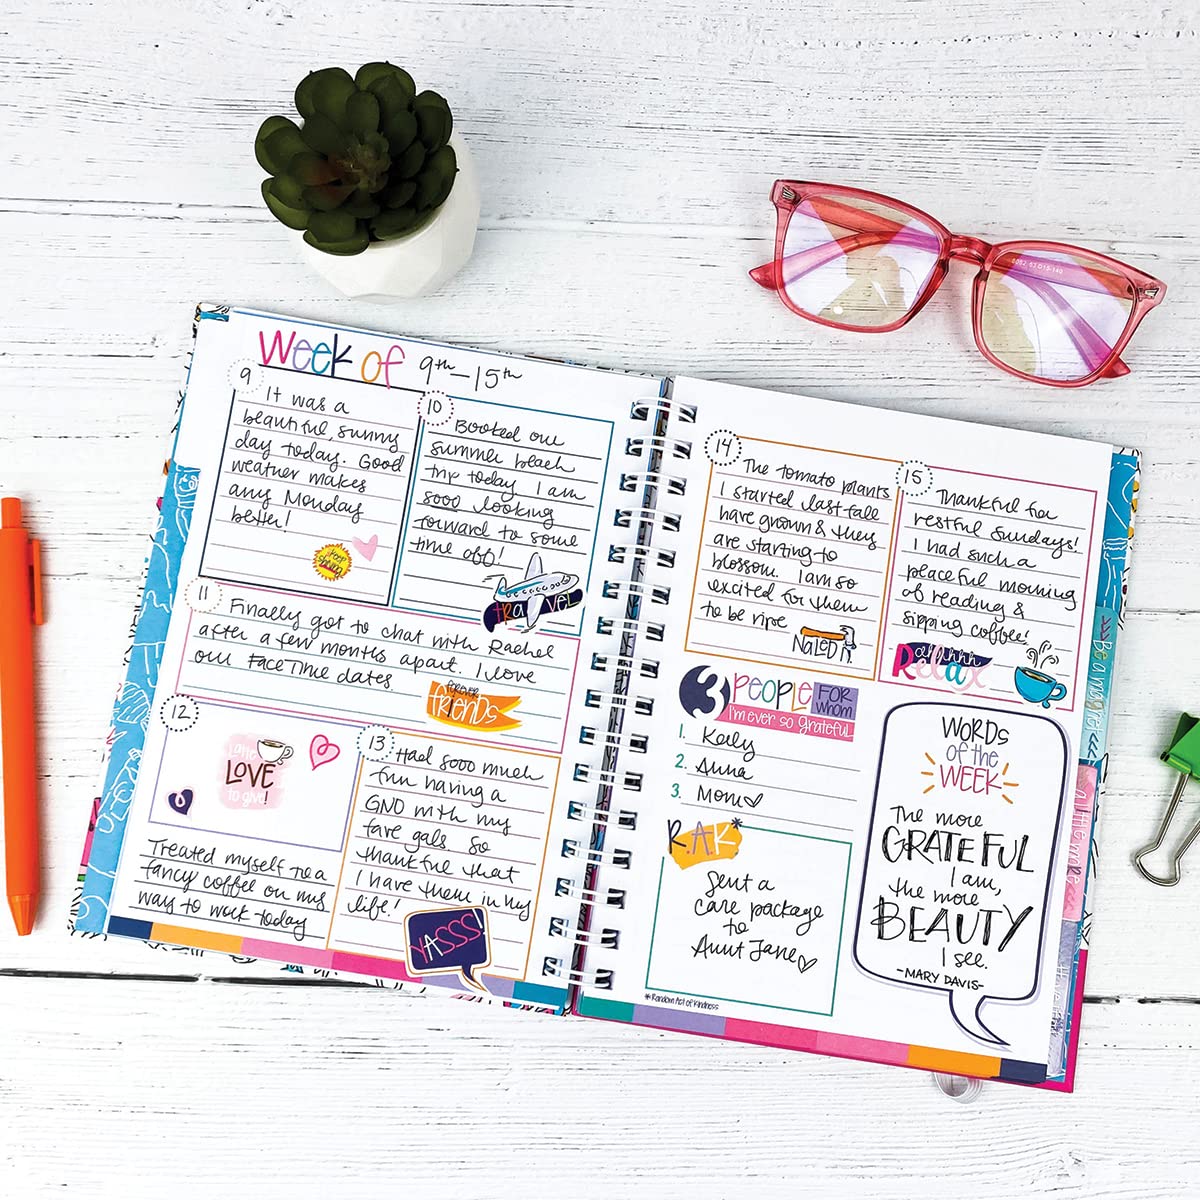 Week of 9th-15th
9
It was a
beautiful, sunny
day today. Good
weather makes
any Monday
better!
keep
shining
10
Booked our
summer beach
trip today. I am
sooo looking
forward to some
time off!
travel
11
Finally got to chat with Rachel
after a few months apart. I love
our FaceTime dates
forever
friends
12
LOVE
to give!
Treated myself to a
fancy coffee on my
way to work today
13
Had sooo much
fun having a
GNO with my
fave gals. So
thankful that
I have them in my
life!
YASSS!
14
The tomato plants
I started last fall
have grown & they
are starting to
blossom. I am so
excited for them
to be ripe
NAILED it.
15
Thankful for
restful Sundays!
I had such a
peaceful morning
of reading &
sipping coffee!
ahhhhh
Relax
3 PEOPLE FOR WHOM
I'm ever so grateful
1. Kaily
2. Anna
3. Mom
R.A.K*
Sent a
care package
to
Aunt Jane
*Random Act of Kindness
WORDS
of the
WEEK
The more
GRATEFUL
I am,
the more
BEAUTY
I see.
-MARY DAVIS-
>>> Be a magnet <<<
5052 53 15-140